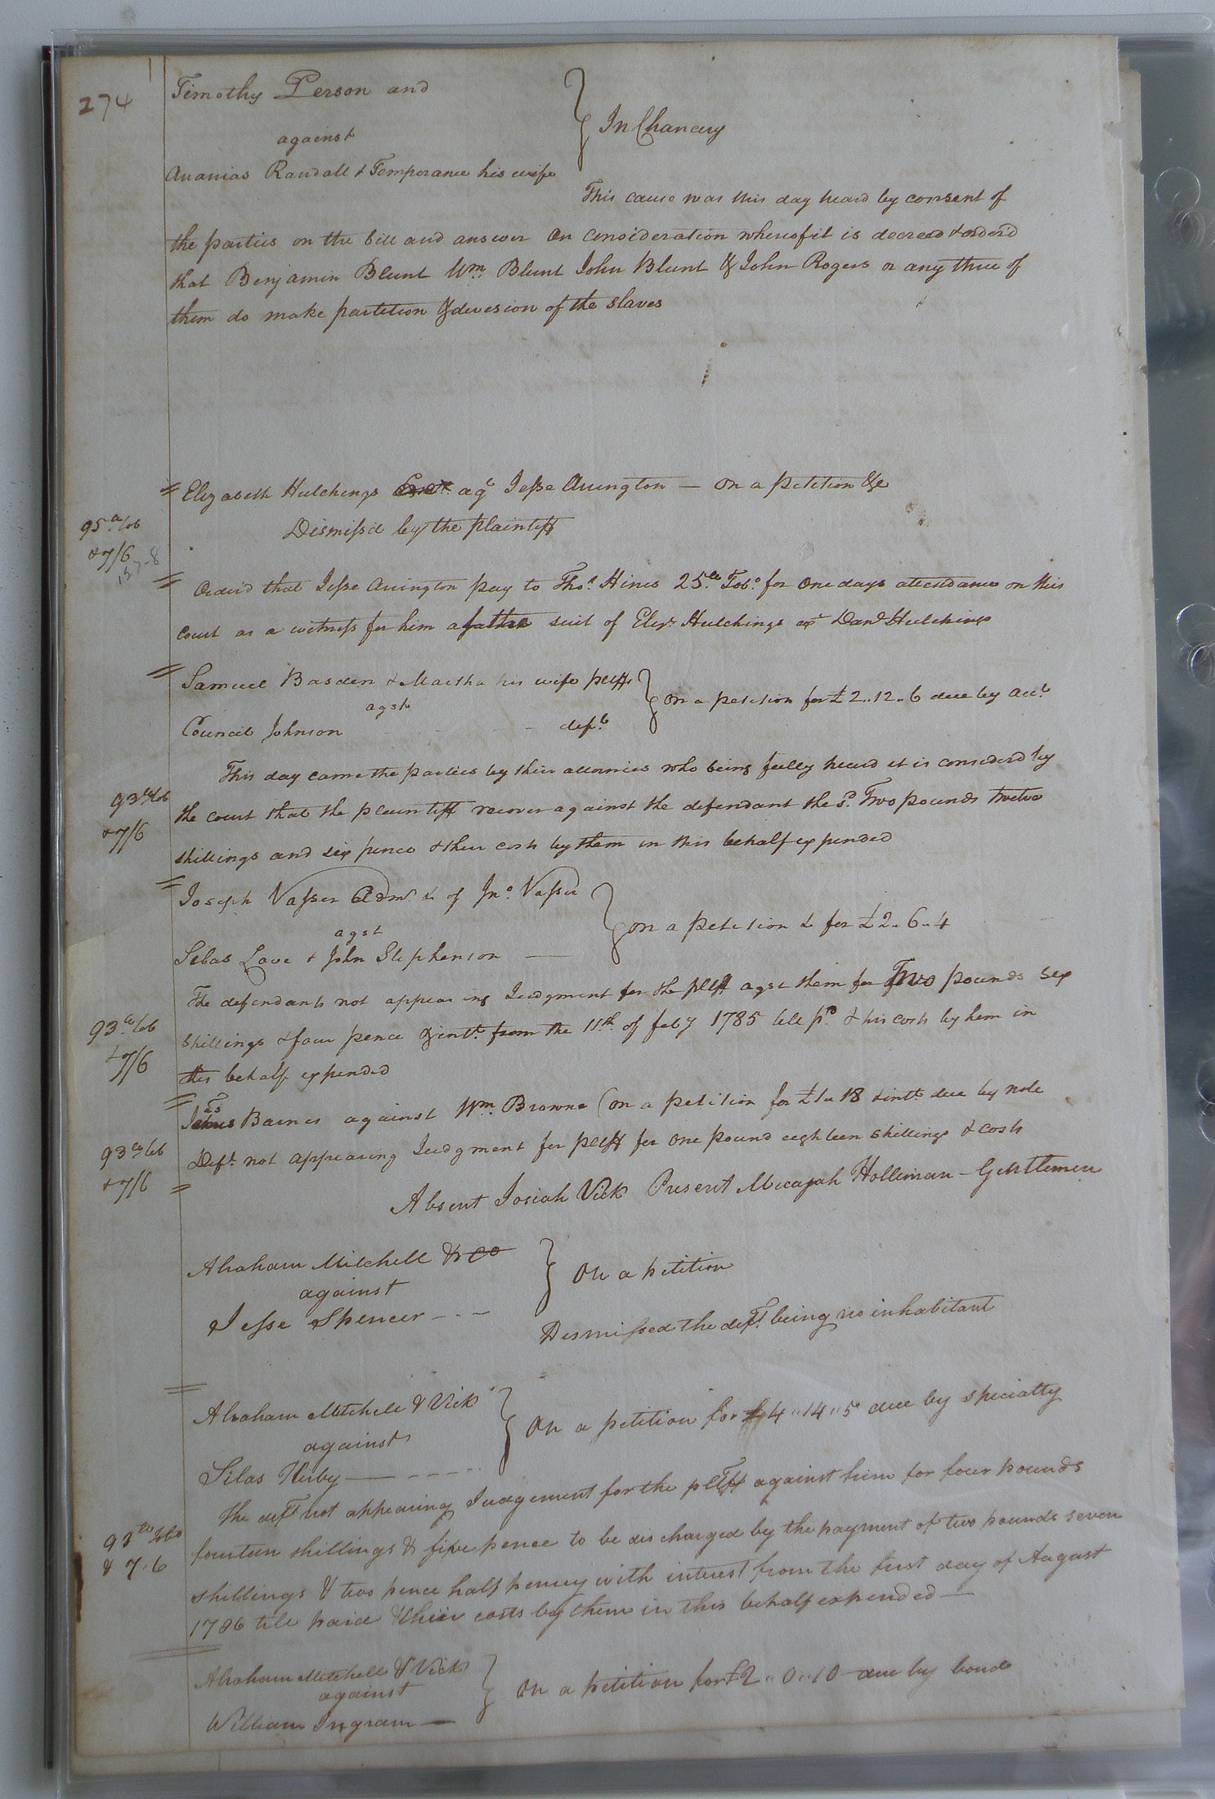 274
Timothy Person and
against
Ananias Randall & Temperance his wife
} In Chancery
This cause was this day heard by consent of
the parties on the bill and answer on consideration whereof it is decreed & orderd
that Benjamin Blunt Wm. Blunt John Blunt & John Rogers or any three of
them do make partition & devesion of the slaves
Elizabeth Hutchings agt Jesse Avington — on a petition &c
Dismiss'd by the plaintiff
95 lb tob
& 7/6
157-8
Order'd that Jesse Avington pay to Thos. Hines 25 lb Tobo. for one days attendance on this
court as a witness for him suit of Elizr. Hutchings Hutchings
Samuel Basden & Martha his wife pltffs
agst
Council Johnson - - - deft.
} on a petition for £2..12..6 due by acct.
This day came the parties by their attornies who being fully heard it is considered by
93 lb tob
& 7/6
the court that the plaintiff recover against the defendant the sd. Two pounds twelve
shillings and six pence & their costs by them in this behalf expended
Joseph Vasser Admr. &c of Jno. Vasser
agst
Silas Love & John Stephenson —
} on a petition &c for £2..6..4
The defendants not appearing Judgment for the pltff agst them for Two pounds six
93 lb tob
& 7/6
shillings & four pence & intt. from the 11th of feby 1785 till pd. & his costs by him in
this behalf expended
Barnes against Wm. Browne (on a petition for £1..18 & intt. due by note
93 lb tob
& 7/6
Deft. not appearing Judgment for pltff for one pound eighteen shillings & costs
Absent Josiah Vick Present Micajah Holliman – Gentlemen
Abraham Mitchell & Co
against
Jesse Spencer - - -
} On a petition
Dismissed the deft. being no inhabitant
Abraham Mitchell & Vick
against
Silas Kirby — - - - -
} On a petition for £4..14..5 due by specialty
The deft not appearing Judgement for the pltff against him for four pounds
93 lb tobo
& 7.6
fourteen shillings & five pence to be discharged by the payment of two pounds seven
shillings & two pence half penny with interest from the first day of August
1786 till paid & their costs by them in this behalf expended —
Abraham Mitchell & Vick
against
William Ingram —
} On a petition for £2..0..10 due by bond